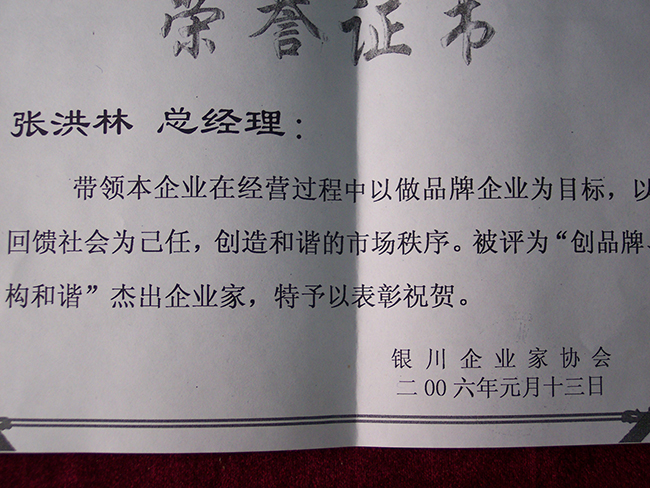 荣誉证书
张洪林 总经理：
带领本企业在经营过程中以做品牌企业为目标，以
回馈社会为己任，创造和谐的市场秩序。被评为“创品牌、
构和谐”杰出企业家，特予以表彰祝贺。
银川企业家协会
二00六年元月十三日